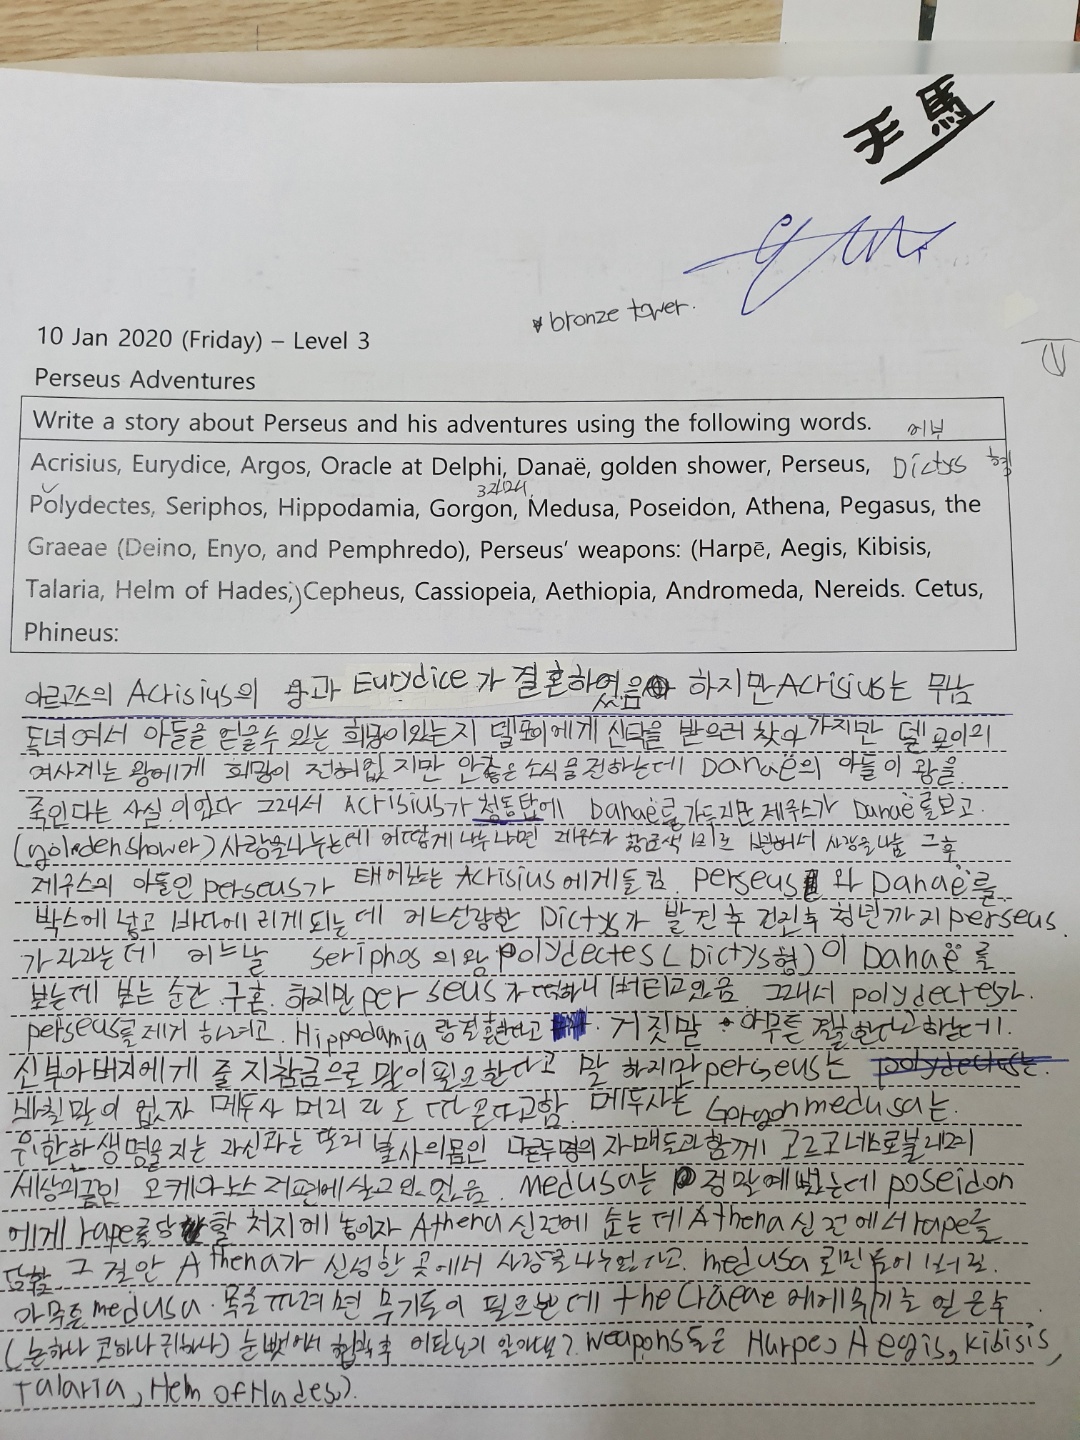 天馬
* bronze tower.
10 Jan 2020 (Friday) – Level 3
Perseus Adventures
Write a story about Perseus and his adventures using the following words.
어부
Acrisius, Eurydice, Argos, Oracle at Delphi, Danaë, golden shower, Perseus, Dictys 형
3자매
Polydectes, Seriphos, Hippodamia, Gorgon, Medusa, Poseidon, Athena, Pegasus, the
Graeae (Deino, Enyo, and Pemphredo), Perseus’ weapons: (Harpē, Aegis, Kibisis,
Talaria, Helm of Hades;) Cepheus, Cassiopeia, Aethiopia, Andromeda, Nereids. Cetus,
Phineus:
아르고스의 Acrisius의 왕과 Eurydice가 결혼하였음 하지만 Acrisius는 무남
독녀여서 아들을 얻을수 있는 희망이있는지 델포이에게 신탁을 받으러 찾아가지만 델포이의
여사제는 왕에게 희망이 전혀없지만 안좋은 소식을 전하는데 Danaë의 아들이 왕을
죽인다는 사실이었다 그래서 Acrisius가 청동탑에 Danaë를 가두지만 제우스가 Danaë를보고
(goldenshower) 사랑을나누는데 어떻게 나누냐면 제우스가 황금색 비로 변해서 사랑을나눔 그후
제우스의 아들인 perseus가 태어나는 Acrisius에게들킴. perseus와 Danaë를
박스에 넣고 바다에 리게되는데 어느선량한 Dictys가 발견후 건진후 청년까지 perseus
가 자라는데 어느날 seriphos의왕 polydectes (Dictys형)이 Danaë를
보는데 보는 순간 구혼. 하지만 perseus가 떡하니 버티고있음 그래서 polydectes가
perseus를 제거 하려고 Hippodamia랑결혼한다고 거짓말 아무튼 결혼한다고하는데
신부아버지에게 줄 지참금으로 말이필요한다고 말 하지만 perseus는
바칠말이 없자 메두사 머리라도 따온다고함. 메두사는 Gorgon medusa는
유한한생명을지는 자신과는 또 불사의몸인 나머두명의 자매들과함께 고르고네스로불리며
세상의끝인 오케아노스 저편에살고 있었음. Medusa는 정말예뻤는데 poseidon
에게 rape를당할 처지에 놓이자 Athena신전에 숨는데 Athena신전에서 rape를
당함 그 결안 Athena가 신성한 곳에서 사랑을나누었다고. medusa
아무튼 medusa 목을따려면 무기들이 필요한데 the Graeae 에게 얻은수
(눈하나 코하나 귀하나) 눈뺏어서 협박후 어딨는지 알아냄? weapons들은 Harpe, Aegis, kibisis,
talaria, Helm ofHades).